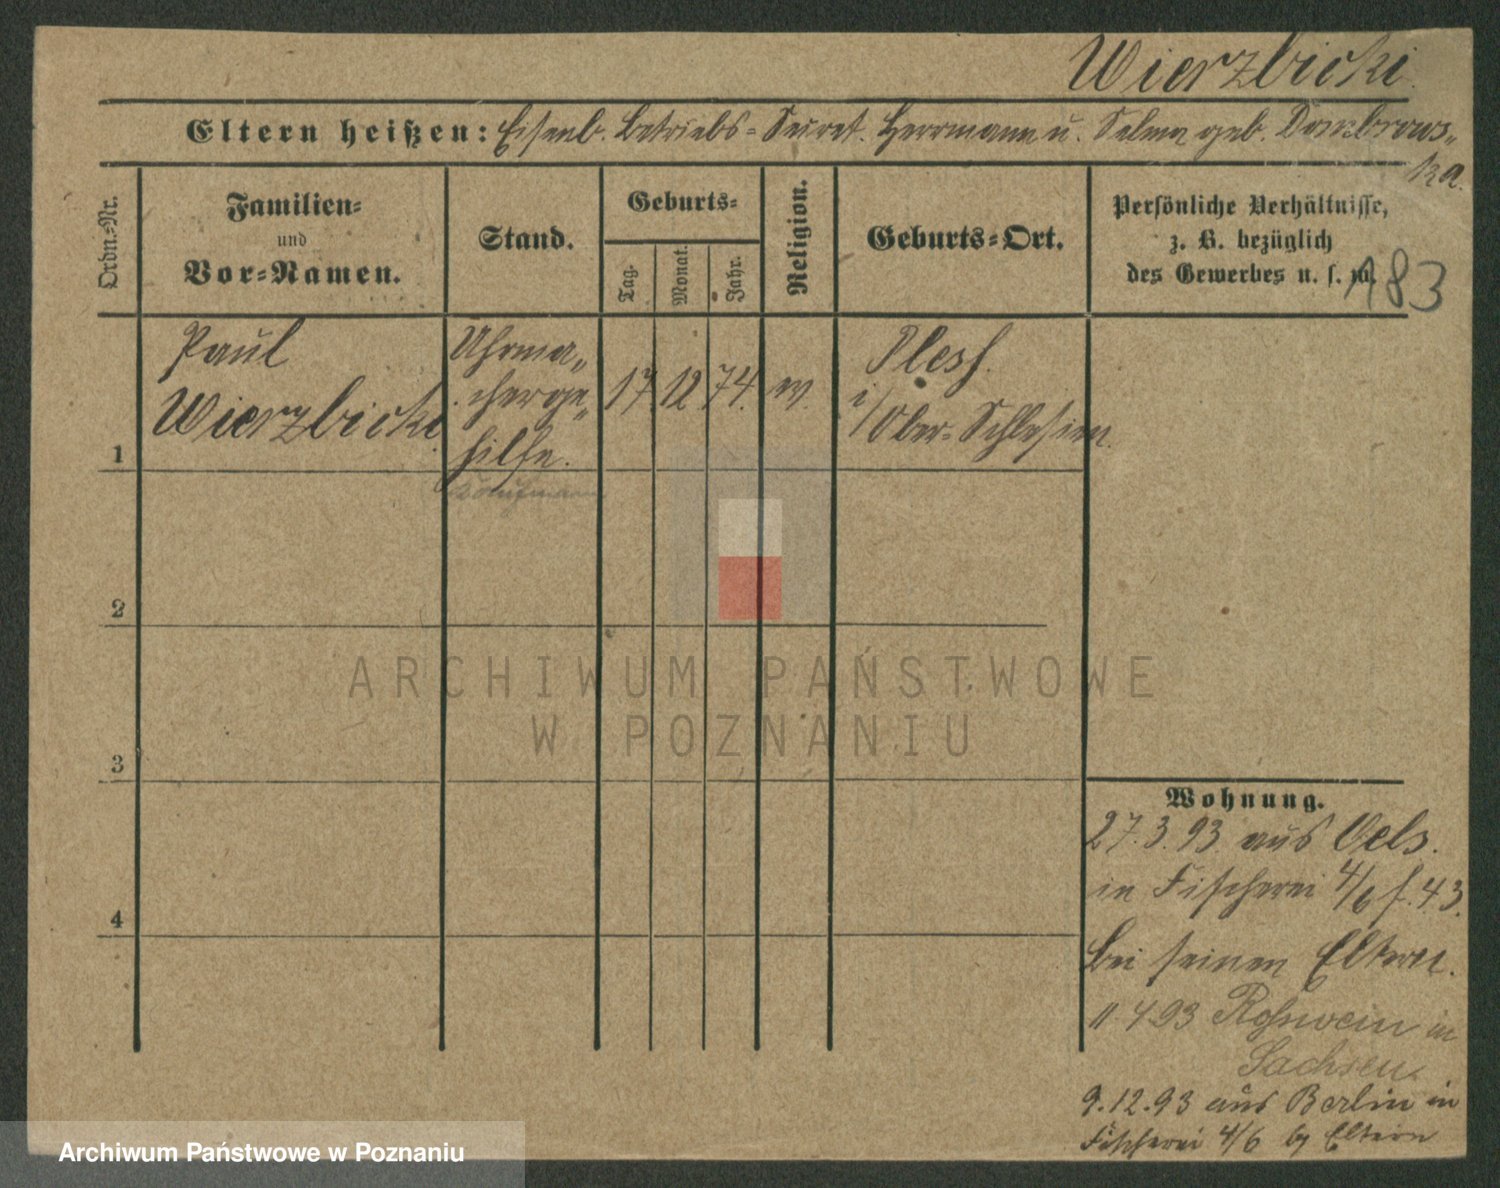 Wierzbicki.
Eltern heißen: Eisenb. Betriebs-Secret. Herrmann u. Selma geb. Dombrows-
ka.
Ordn.-Nr.
Familien-
und
Vor-Namen.
Stand.
Geburts-
Tag.
Monat.
Jahr.
Religion.
Geburts-Ort.
Persönliche Verhältnisse,
z. B. bezüglich
des Gewerbes u. s. w.
183
1
Paul
Wierzbicki.
Uhrma-
cherge-
hilfe.
Kaufmann
17. 12. 74.
Pless.
i/Ober-Schlesien.
2
3
4
Wohnung.
27.3.93 aus Oels.
in Fischerei 4/6 43.
bei seinen Eltern.
11.4.93 Roßwein in
Sachsen.
9.12.93 aus Berlin in
Fischerei 4/6 by Eltern
ARCHIWUM PAŃSTWOWE
W POZNANIU
Archiwum Państwowe w Poznaniu